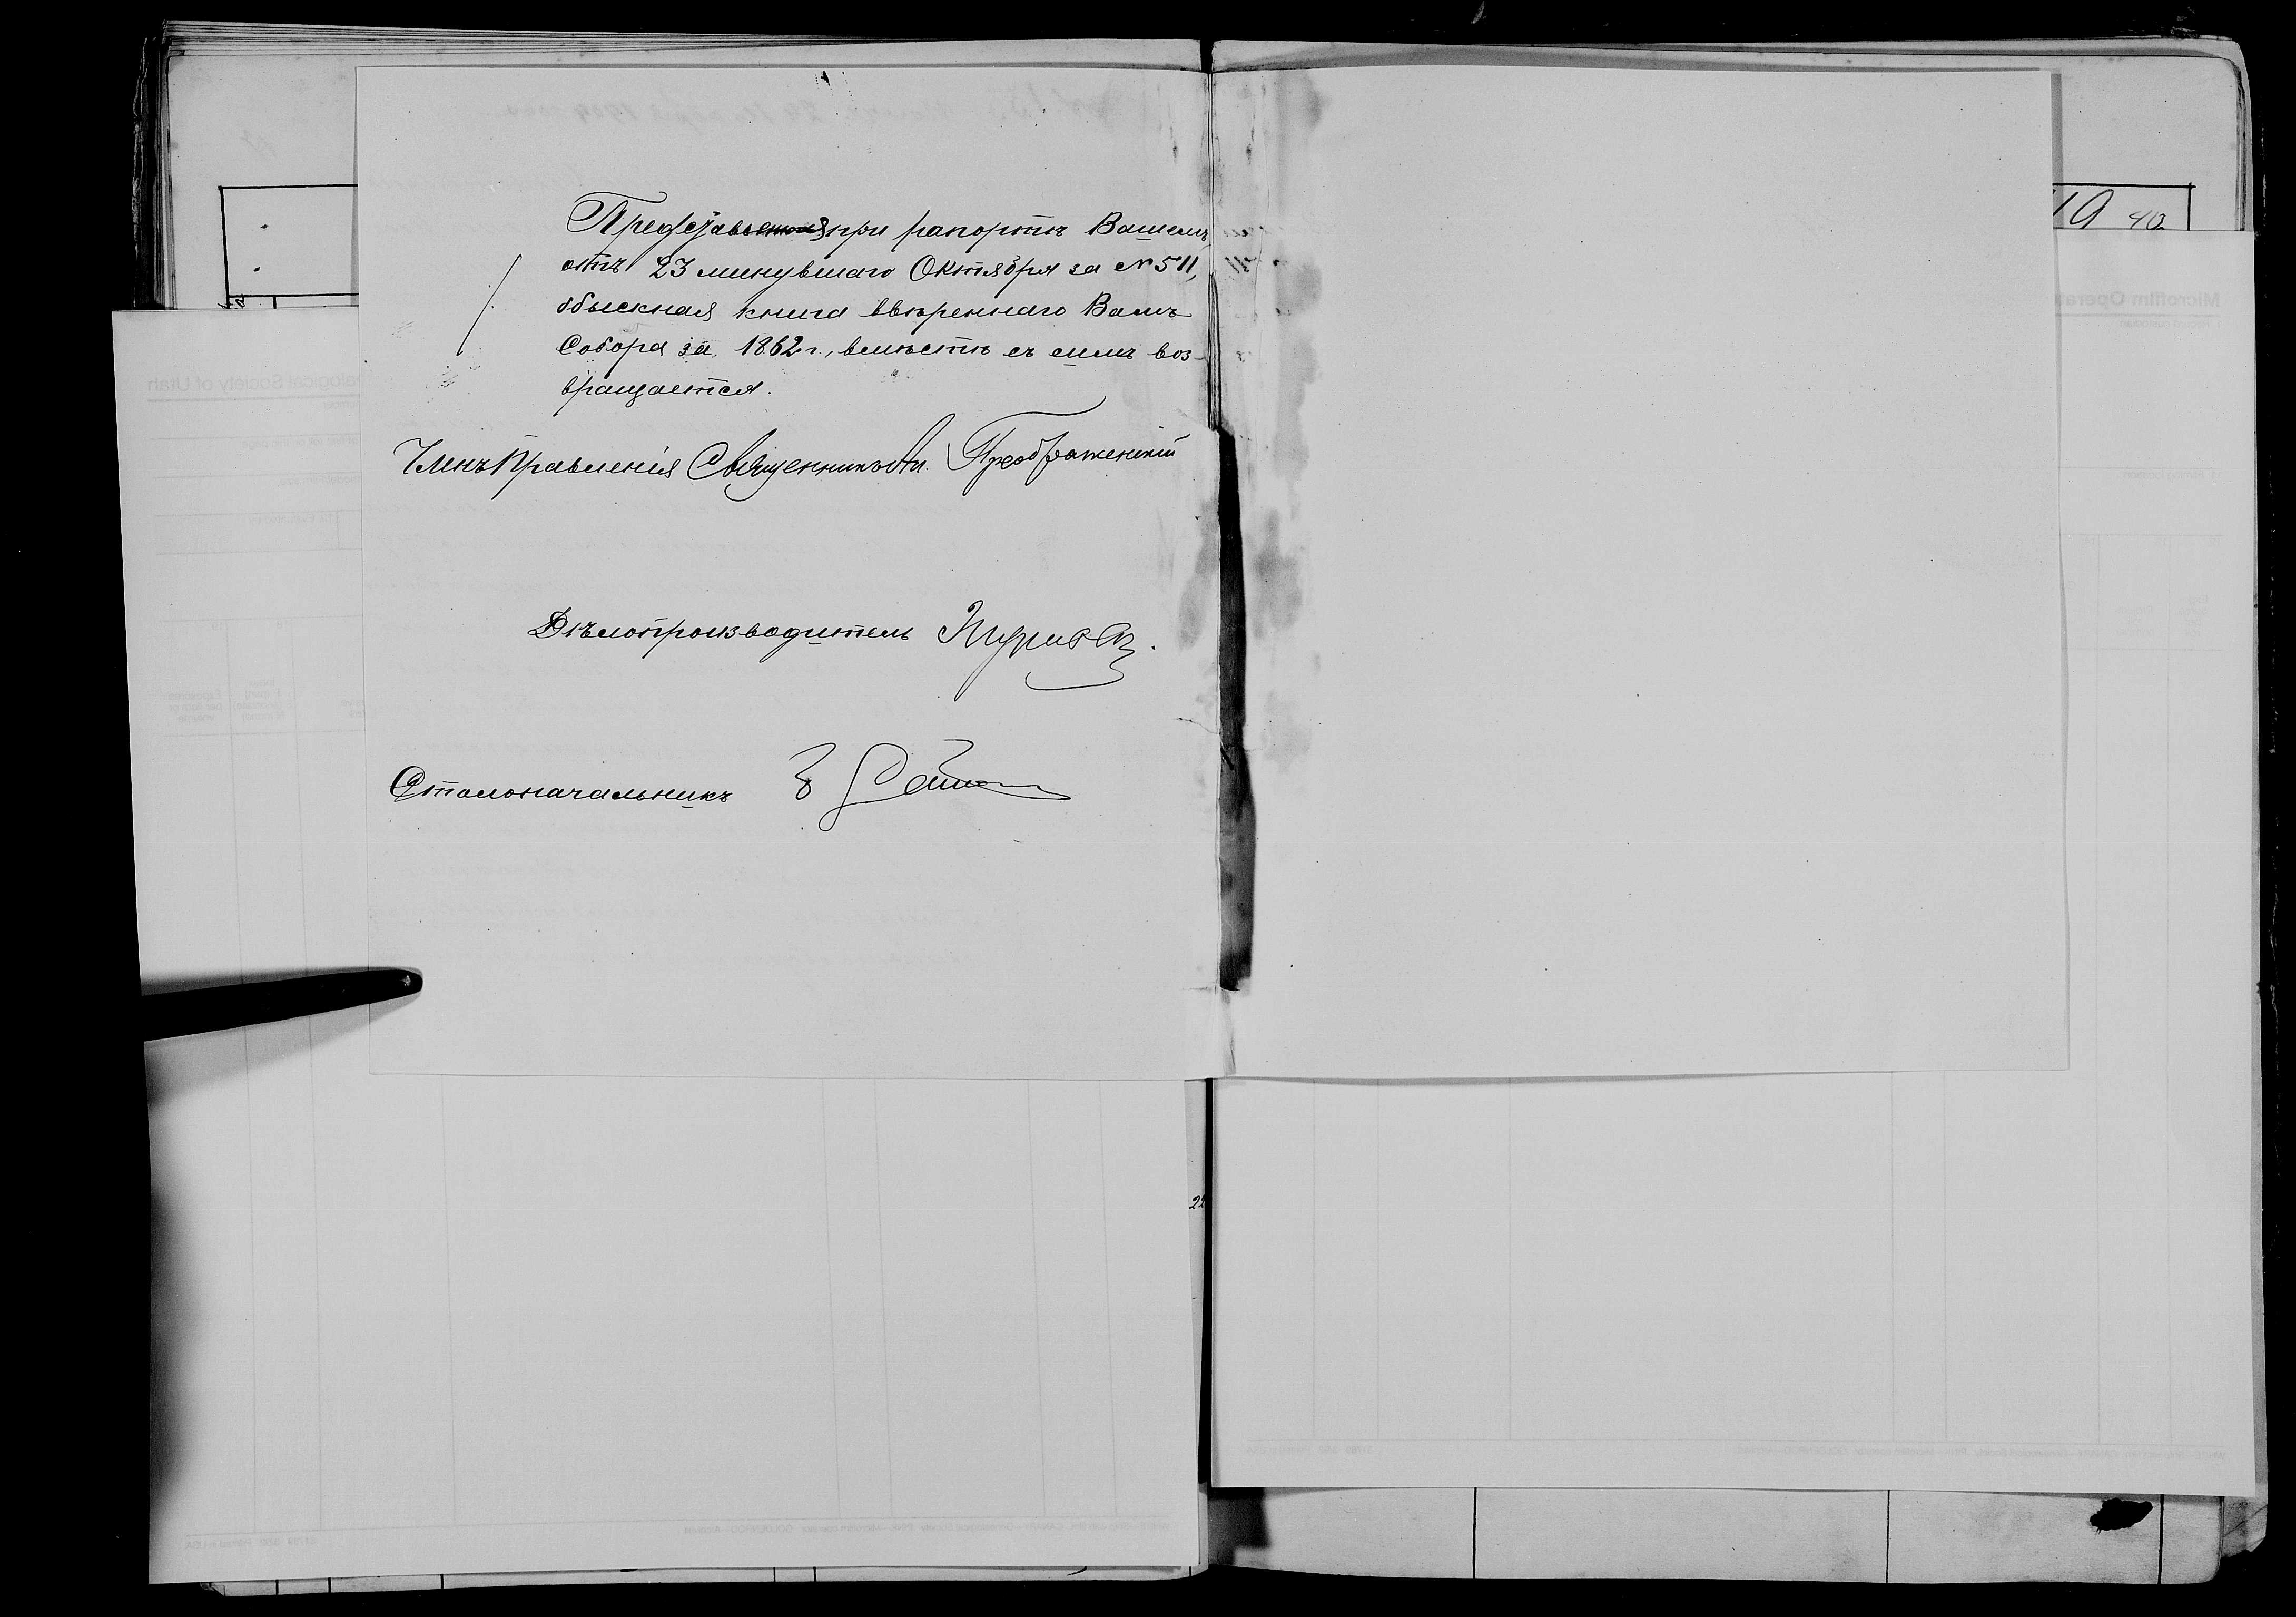 Представленная при рапортѣ Вашемъ
отъ 23 минувшаго Октября за № 511,
обыскная книга ввѣреннаго Вамъ
Собора за 1862 г., вмѣстѣ съ симъ воз-
вращается.
Членъ Правленія Священникъ Ал. Преображенскій
Дѣлопроизводитель
Столоначальникъ
19 40
22